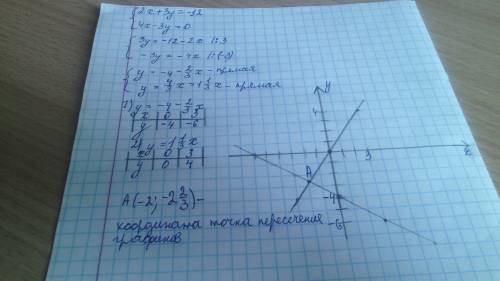 2x+3y=-12
4x-3y=0
3y=-12-2x |:3
-3y=-4x |:(-3)
y=-4-2/3x-прямая
y=4/3x=1 1/3x-прямая
1) y=-4-2/3x
x | 0 | 3
y | -4 | -6
2) y=1 1/3x
x | 0 | 3
y | 0 | 4
A(-2; -2 2/3)-
координата точка пересечения
графиков
y
4
3
x
A
-4
-6